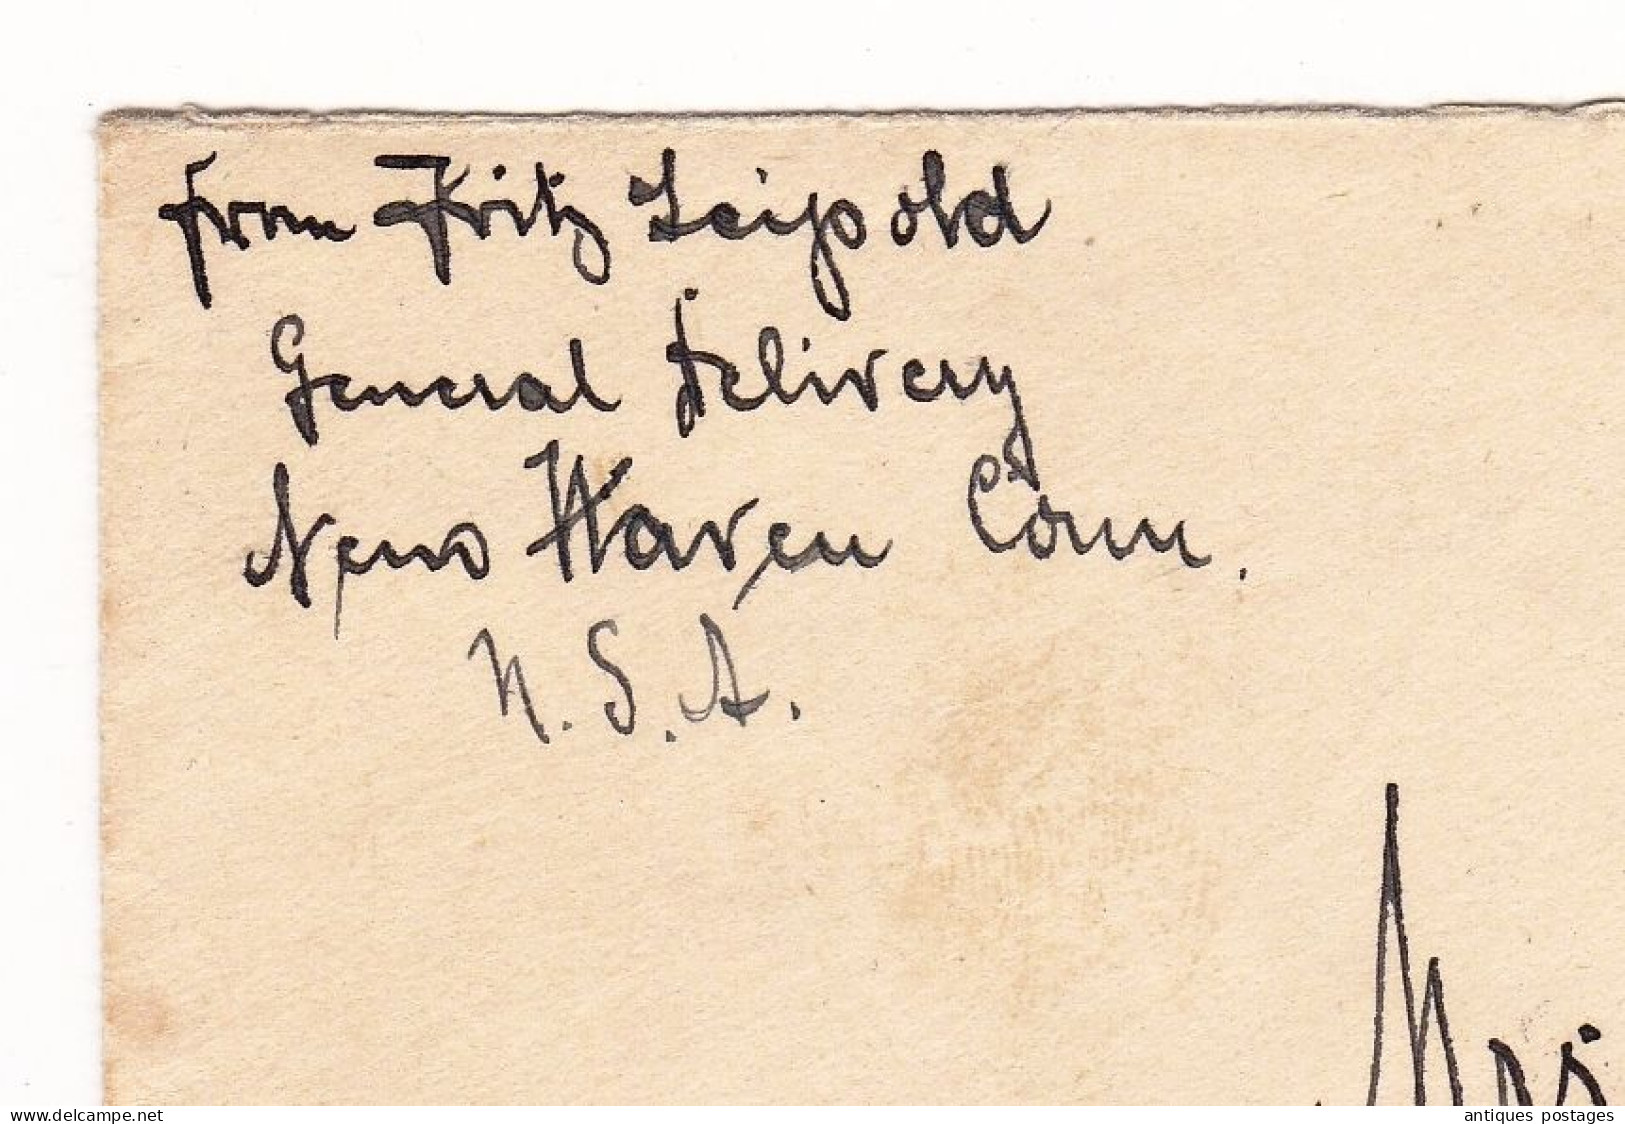 from Fritz Leipold
General Delivery
New Haven Conn.
U.S.A.
Mrs
www.delcampe.net
antiques postages